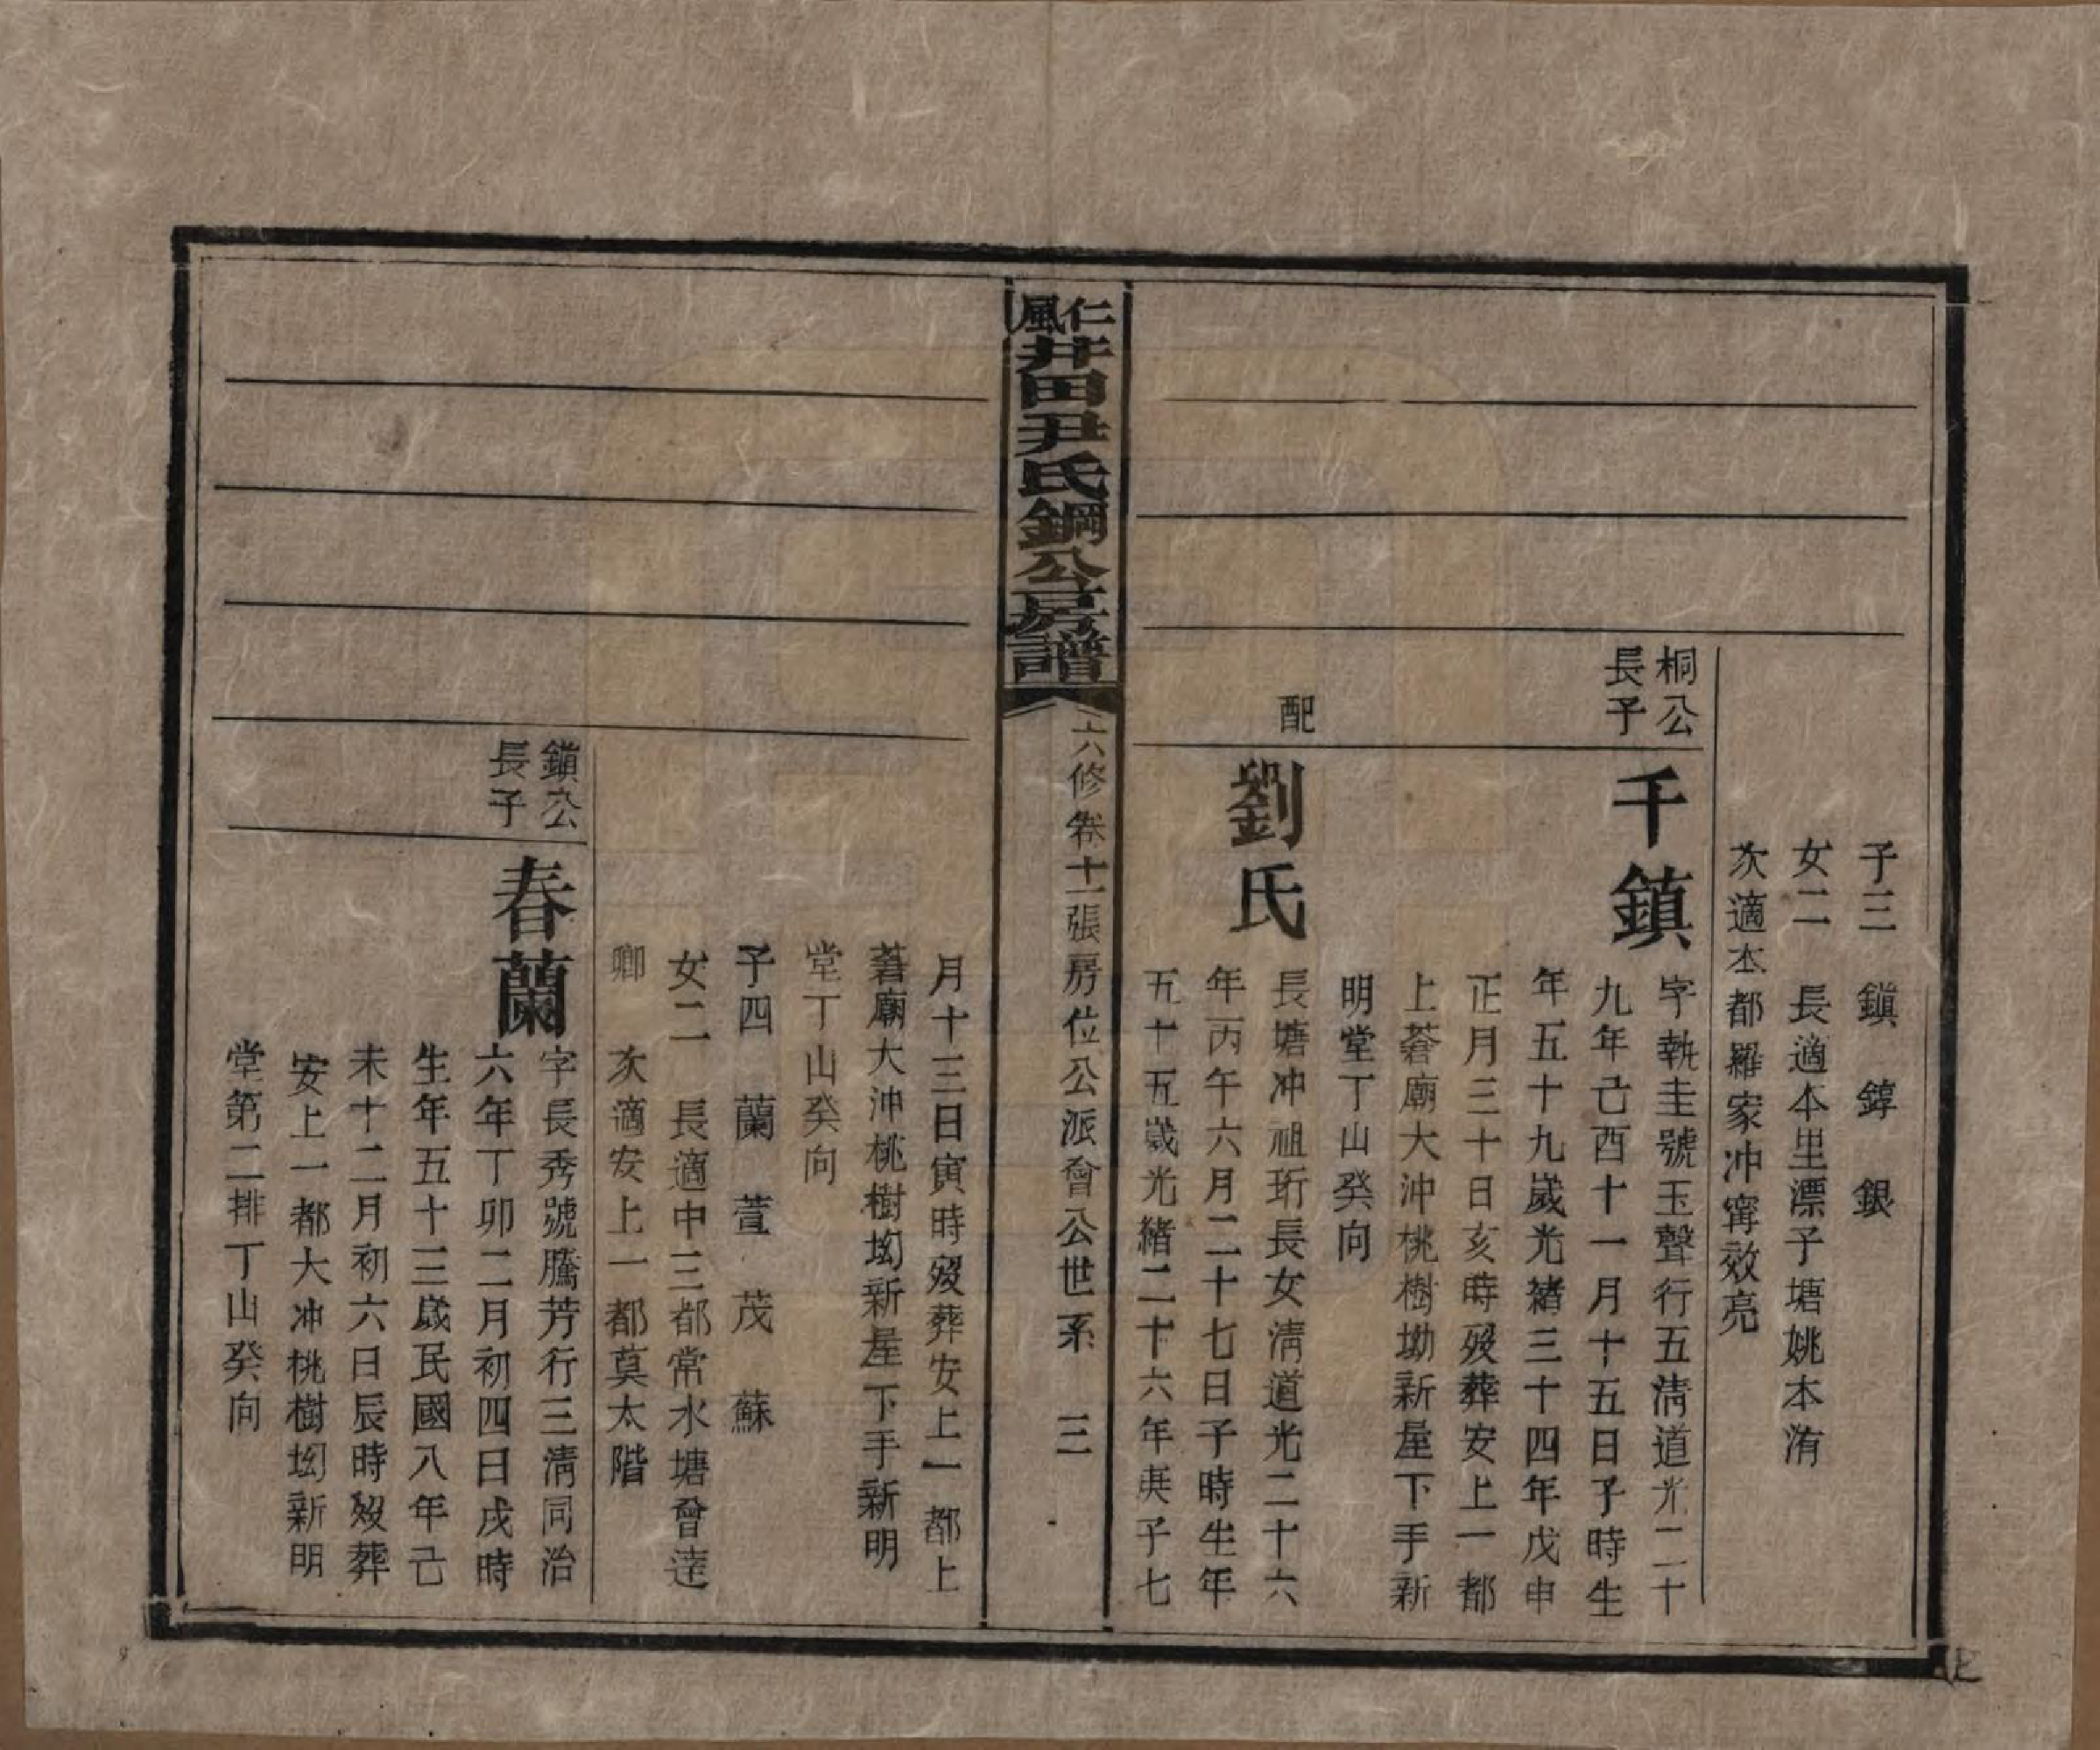 子三 鎭 錞 銀
女二 長適本里漂子塘姚本洧
次適本都羅家冲甯效亮
桐公
長子
千鎮
字執圭號玉聲行五淸道光二十
九年己酉十一月十五日子時生
年五十九歲光緒三十四年戊申
正月三十日亥時歿葬安上一都
上蒼廟大沖桃樹坳新屋下手新
明堂丁山癸向
配
劉氏
長塘冲祖珩長女淸道光二十六
年丙午六月二十七日子時生年
五十五歲光緒二十六年庚子七
仁風井田尹氏鋼公房譜
六修卷十一張房位公派會公世系 三
月十三日寅時歿葬安上一都上
蒼廟大沖桃樹坳新屋下手新明
堂丁山癸向
子四 蘭 萱 茂 蘇
女二 長適中三都常水塘曾達
卿 次適安上一都莫太階
鎭公
長子
春蘭
字長秀號騰芳行三淸同治
六年丁卯二月初四日戌時
生年五十三歲民國八年己
未十二月初六日辰時歿葬
安上一都大冲桃樹坳新明
堂第二排丁山癸向